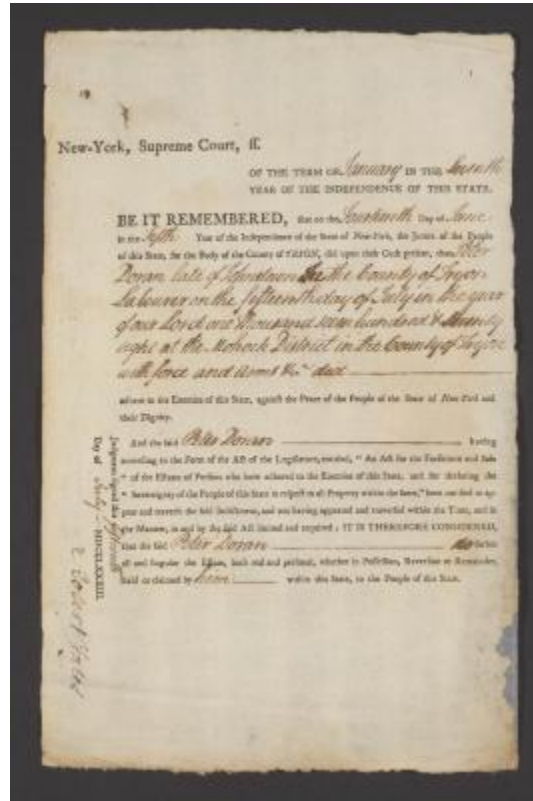 New-York, Supreme Court, ss.
OF THE TERM OF January IN THE Seventh
YEAR OF THE INDEPENDENCE OF THIS STATE.
BE IT REMEMBERED, that on the Day of June
in the fifth Year of the Independence of the State of New-York, the Jurors of the People
of this State, for the Body of the County of TRYON, did upon their Oath present, that Peter
Doran late of the County of Tryon
Labourer on the fifteenth day of July in the year
of our Lord one thousand seven hundred & Seventy
eight at the Mohock District in the County of Tryon
with force and Arms &c. did
adhere to the Enemies of this State, against the Peace of the People of the State of New-York and
their Dignity.
And the said Peter Doran having
according to the Form of the Act of the Legislature, entitled, "An Act for the Forfeiture and Sale
"of the Estates of Persons who have adhered to the Enemies of this State, and for declaring the
"Sovereignty of the People of this State in respect to all Property within the same," been notified to ap-
pear and traverse the said Indictment, and not having appeared and traversed within the Time, and in
the Manner, in and by the said Act limited and required; IT IS THEREFORE CONSIDERED,
that the said Peter Doran do forfeit
all and singular the Estate, both real and personal, whether in Possession, Reversion or Remainder,
held or claimed by him within this State, to the People of this State.
Judgment signed this
Day of July MDCCLXXXIII.